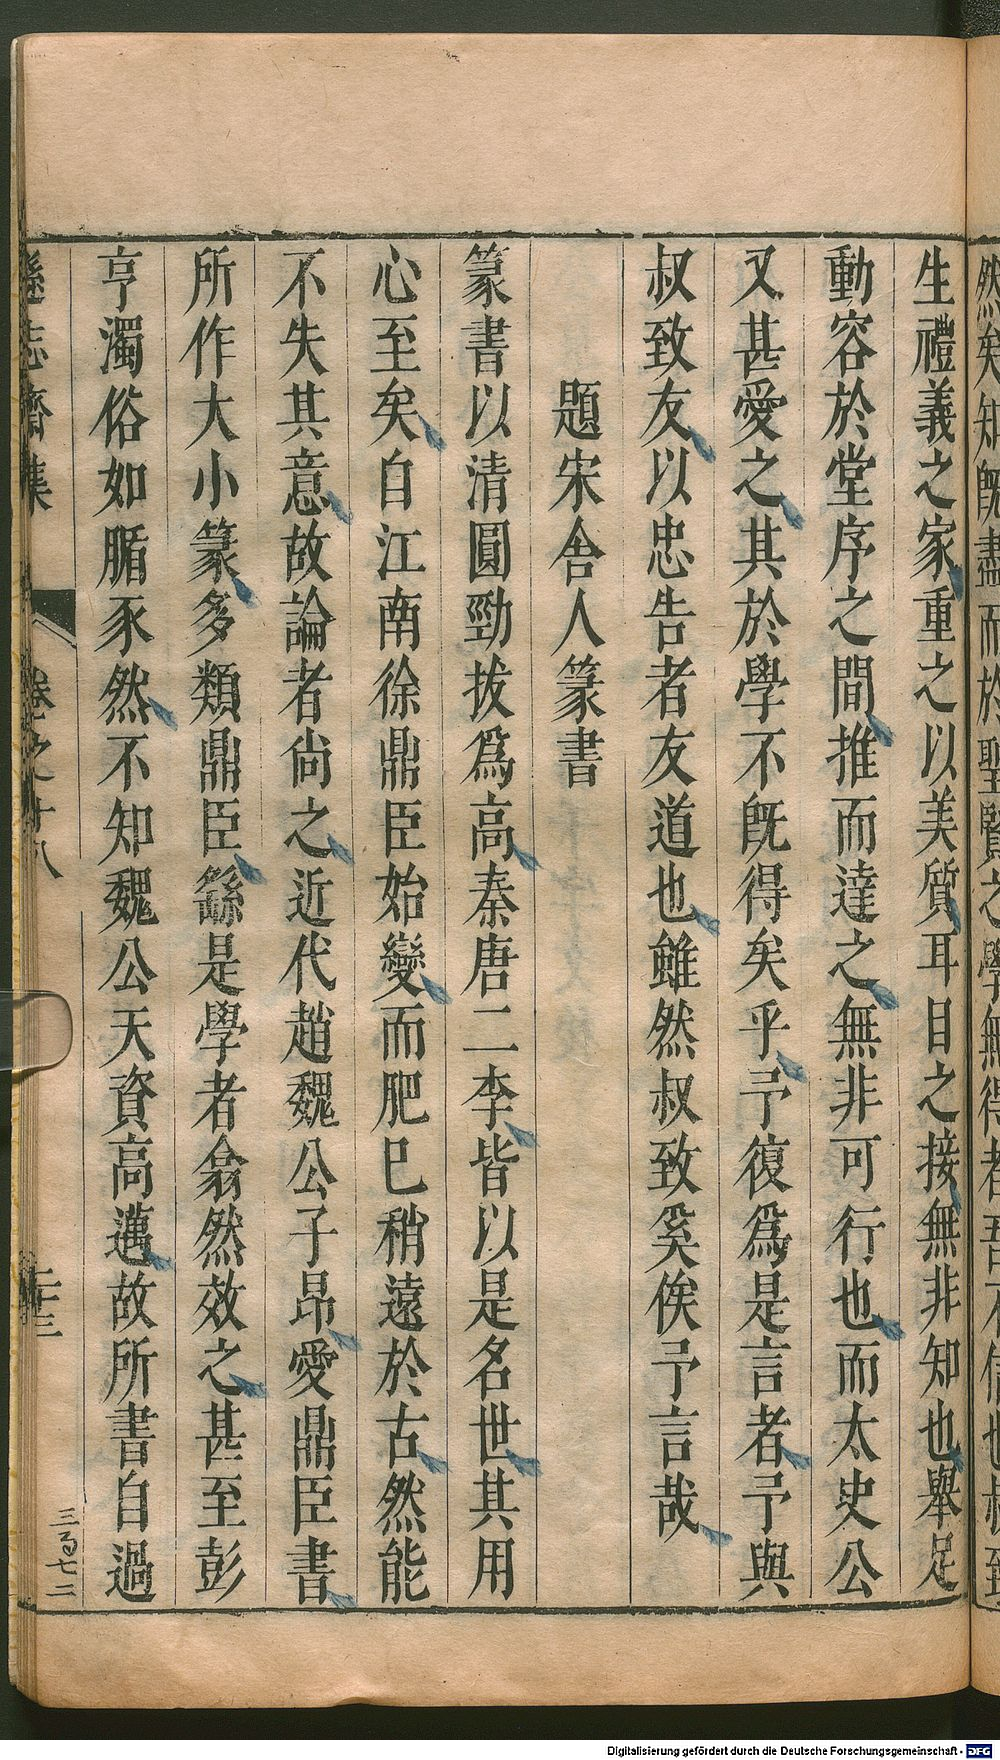 然矣知旣盡而於聖賢之學無得者吾不信也叔致
生禮義之家重之以美質耳目之接無非知也舉足
動容於堂序之間推而達之無非可行也而太史公
又甚愛之其於學不旣得矣乎予復爲是言者予與
叔致友以忠告者友道也雖然叔致奚俟予言哉
題宋舍人篆書
篆書以清圓勁拔爲高秦唐二李皆以是名世其用
心至矣自江南徐鼎臣始變而肥已稍遠於古然能
不失其意故論者尙之近代趙魏公子昂愛鼎臣書
所作大小篆多類鼎臣繇是學者翕然效之甚至彭
亨濁俗如腯豕然不知魏公天資高邁故所書自過
遜志齋集 卷之十八 二十三
三百七二
Digitalisierung gefördert durch die Deutsche Forschungsgemeinschaft - DFG